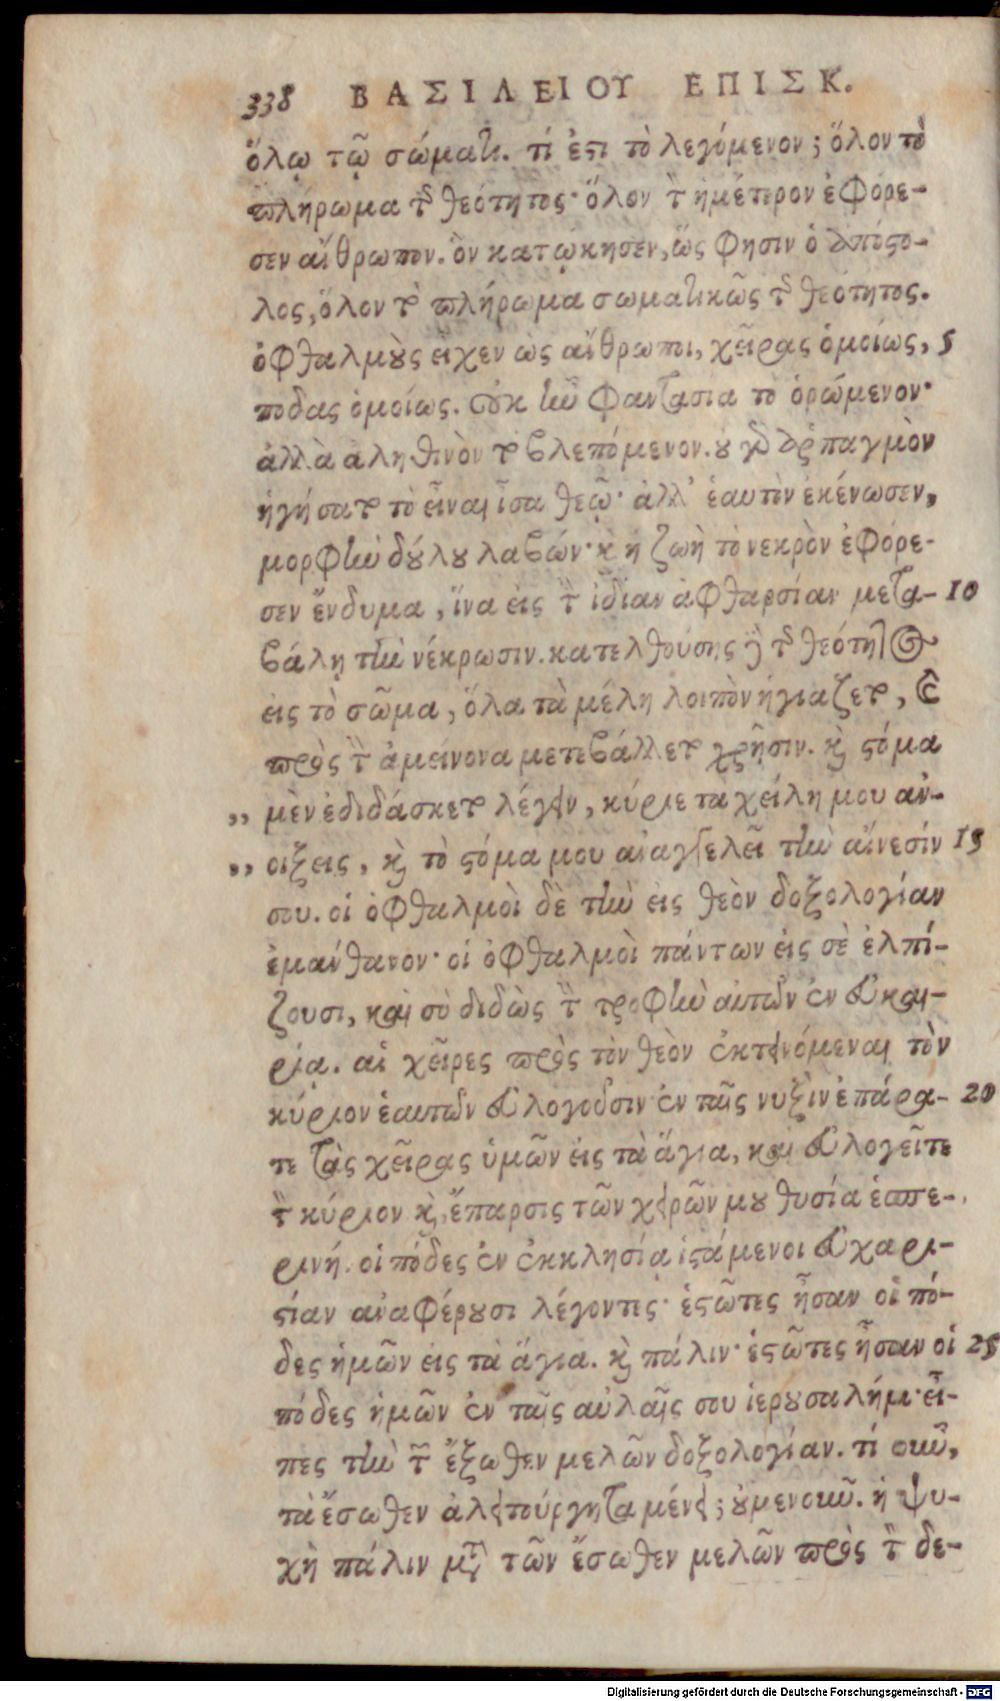 338 ΒΑΣΙΛΕΙΟΥ ΕΠΙΣΚ.
ὅλῳ τῷ σώματι. τί ἐστι τὸ λεγόμενον; ὅλον τὸ
πλήρωμα τῆς θεότητος· ὅλον τὸν ἡμέτερον ἐφόρε-
σεν ἄνθρωπον. ὃν κατῴκησεν, ὥς φησιν ὁ ἀπόστο-
λος, ὅλον τὸ πλήρωμα σωματικῶς τῆς θεότητος.
ὀφθαλμοὺς εἶχεν ὡς ἄνθρωποι, χεῖρας ὁμοίως, 5
ποδας ὁμοίως. οὐκ ἦν φαντασία τὸ ὁρώμενον·
ἀλλὰ ἀληθινὸν τὸ βλεπόμενον. οὐ γὰρ ἁρπαγμὸν
ἡγήσατο τὸ εἶναι ἶσα θεῷ· ἀλλ' ἑαυτὸν ἐκένωσεν,
μορφὴν δούλου λαβών· καὶ ἡ ζωὴ τὸ νεκρὸν ἐφόρε-
σεν ἔνδυμα, ἵνα εἰς τὴν ἰδίαν ἀφθαρσίαν μετα- 10
βάλῃ τὴν νέκρωσιν. κατελθούσης δὲ τῆς θεότητος
εἰς τὸ σῶμα, ὅλα τὰ μέλη λοιπὸν ἡγιαζετο, καὶ
πρὸς τὴν ἀμείνονα μετεβάλλετο χρῆσιν. καὶ στόμα
„ μὲν ἐδιδάσκετο λέγειν, κύριε τὰ χείλη μου ἀν-
„ οιξεις, καὶ τὸ στόμα μου ἀναγγελεῖ τὴν αἴνεσίν 15
σου. οἱ ὀφθαλμοὶ δὲ τὴν εἰς θεὸν δοξολογίαν
ἐμάνθανον· οἱ ὀφθαλμοὶ πάντων εἰς σὲ ἐλπί-
ζουσι, καὶ σὺ διδὼς τὴν τροφὴν αὐτῶν ἐν εὐκαι-
ρίᾳ. αἱ χεῖρες πρὸς τὸν θεὸν ἐκτεινόμεναι τὸν
κύριον ἑαυτῶν εὐλογοῦσιν· ἐν ταῖς νυξὶν ἐπάρα- 20
τε τὰς χεῖρας ὑμῶν εἰς τὰ ἅγια, καὶ εὐλογεῖτε
τὸν κύριον καὶ, ἔπαρσις τῶν χειρῶν μου θυσία ἑσπε-
ρινή. οἱ πόδες ἐν ἐκκλησίᾳ ἱστάμενοι εὐχαρι-
στίαν ἀναφέρουσι λέγοντες· ἑστῶτες ἦσαν οἱ πό-
δες ἡμῶν εἰς τὰ ἅγια. καὶ πάλιν· ἑστῶτες ἦσαν οἱ 25
πόδες ἡμῶν ἐν ταῖς αὐλαῖς σου ἱερουσαλήμ· εἶ-
πες τὴν τῶν ἔξωθεν μελῶν δοξολογίαν. τί οὖν,
τὰ ἔσωθεν ἀλειτούργητα μένει; οὐμενοῦν. ἡ ψυ-
χὴ πάλιν μετὰ τῶν ἔσωθεν μελῶν πρὸς τὸν δε-
Digitalisierung gefördert durch die Deutsche Forschungsgemeinschaft - DFG